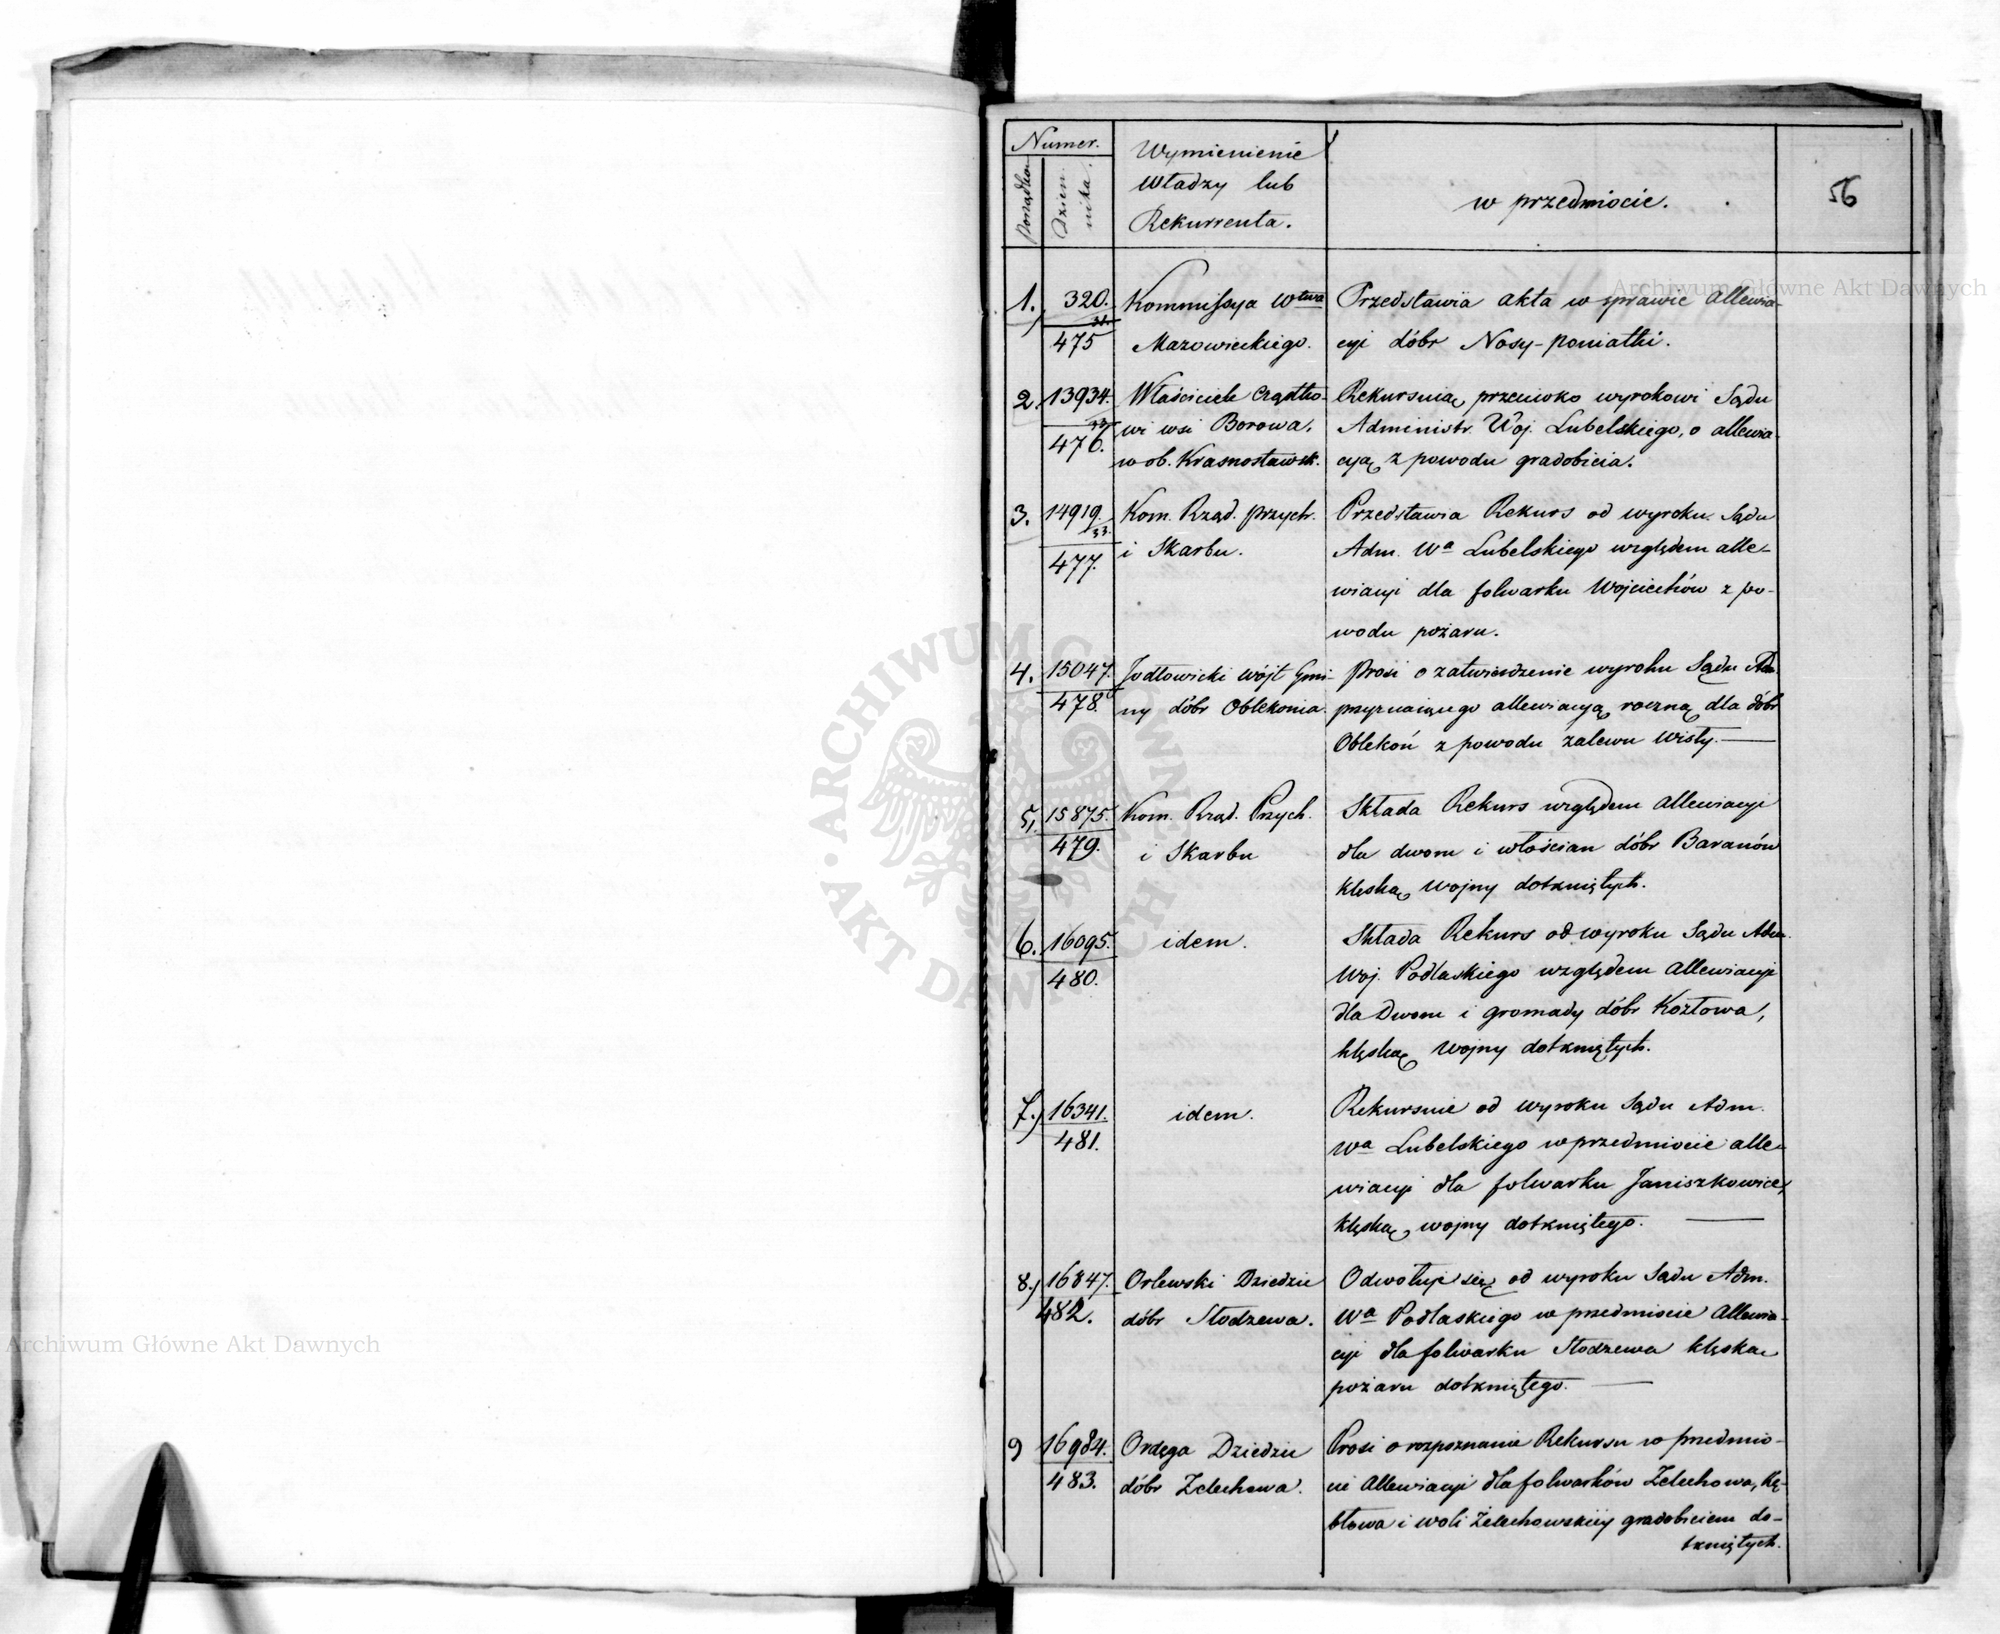 Numer.
Porządko.
Dzien-
nika.
Wymienienie
Władzy lub
Rekurrenta.
w przedmiocie.
56
1.) 320. Kommissya Wtwa Przedstawia akta w sprawie allewia-
475 Mazowieckiego. cyi dóbr Nosy-poniatki.
2. 13934. Właściciele cząstko- Rekursuią przeciwko wyrokowi Sądu
476. wi wsi Borowa. Administr. Woj. Lubelskiego, o allewia-
w ob. Krasnostawsk. cyą z powodu gradobicia.
3. 14919. Kom. Rząd. przych. Przedstawia Rekurs od wyroku Sądu
33.
477. i Skarbu. Adm. Wa Lubelskiego względem alle-
wiacyi dla folwarku Wojciechów z po-
wodu pożaru.
4. 15047. Jodłowicki wójt Gmi- Prosi o zatwierdzenie wyroku Sądu Adm.
478. ny dóbr Oblekonia. przyznaiącego allewiacyą roczną dla dóbr
Oblekoń z powodu zalewu Wisły.
5. 15875. Kom. Rząd. Przych. Składa Rekurs względem allewiacyi
479. i Skarbu dla dworu i włościan dóbr Baranów
klęską wojny dotkniętych.
6. 16095. idem. Składa Rekurs od wyroku Sądu Adm.
480. Woj. Podlaskiego względem allewiacyi
dla Dworu i gromady dóbr Kozłowa,
klęską wojny dotkniętych.
7.) 16341. idem. Rekursuie od wyroku Sądu Adm.
481. Wa Lubelskiego w przedmiocie alle-
wiacyi dla folwarku Janiszkowice,
klęską wojny dotkniętego.
8.) 16847. Orlewski Dziedzic Odwołuje się od wyroku Sądu Adm.
482. dóbr Stodzewa. Wa Podlaskiego w przedmiocie Allewia-
cyi dla folwarku Stodzewa klęską
pożaru dotkniętego.
9 16984. Ordęga Dziedzic Prosi o rozpoznanie Rekursu w przedmio-
483. dóbr Zelechowa. cie Allewiacyi dla folwarków Zelechowa, Kę-
błowa i woli Żelechowskiéy gradobiciem do-
tkniętych.
Archiwum Główne Akt Dawnych
Archiwum Główne Akt Dawnych
ARCHIWUM GŁÓWNE AKT DAWNYCH